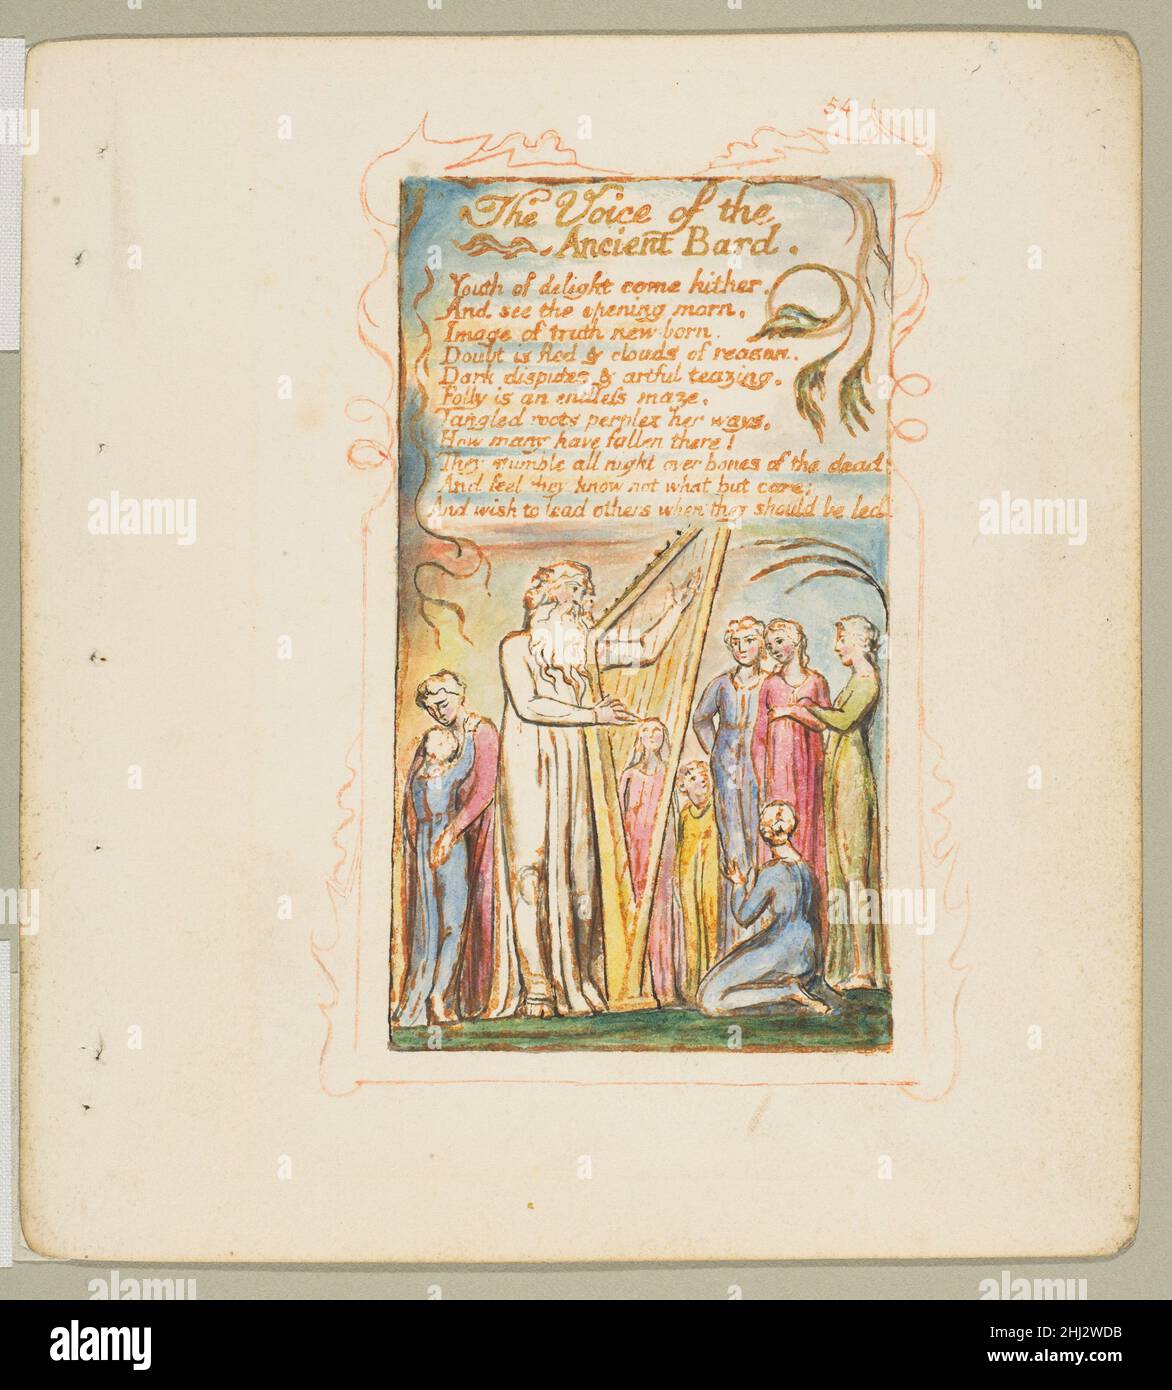 54
The Voice of the
Ancient Bard.
Youth of delight come hither.
And see the opening morn,
Image of truth new born.
Doubt is fled & clouds of reason.
Dark disputes & artful teazing.
Folly is an endless maze,
Tangled roots perplex her ways,
How many have fallen there!
They stumble all night over bones of the dead;
And feel they know not what but care;
And wish to lead others when they should be led.
alamy
Image ID: 2HJ2WDB
www.alamy.com